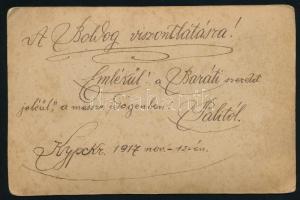 A Boldog viszontlátásra!
Emlékül! a Baráti szeretet
jeléül, a messze idegenben.
Palitól.
1917 nov.-12-én.